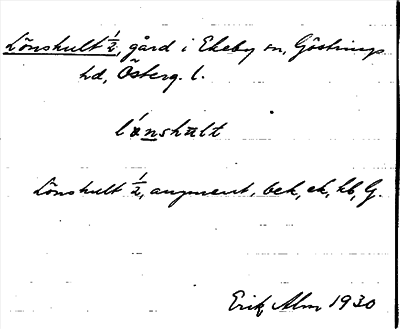 Lönshult ½, gård i Ekeby sn, Göstrings
hd, Österg. l.
lönshult
Lönshult ½, augment, bek, ek, kb, G.
Erik Alm 1930